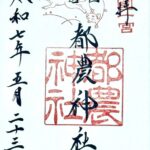 一之宮
都農神社
都農神社
令和七年五月二十三